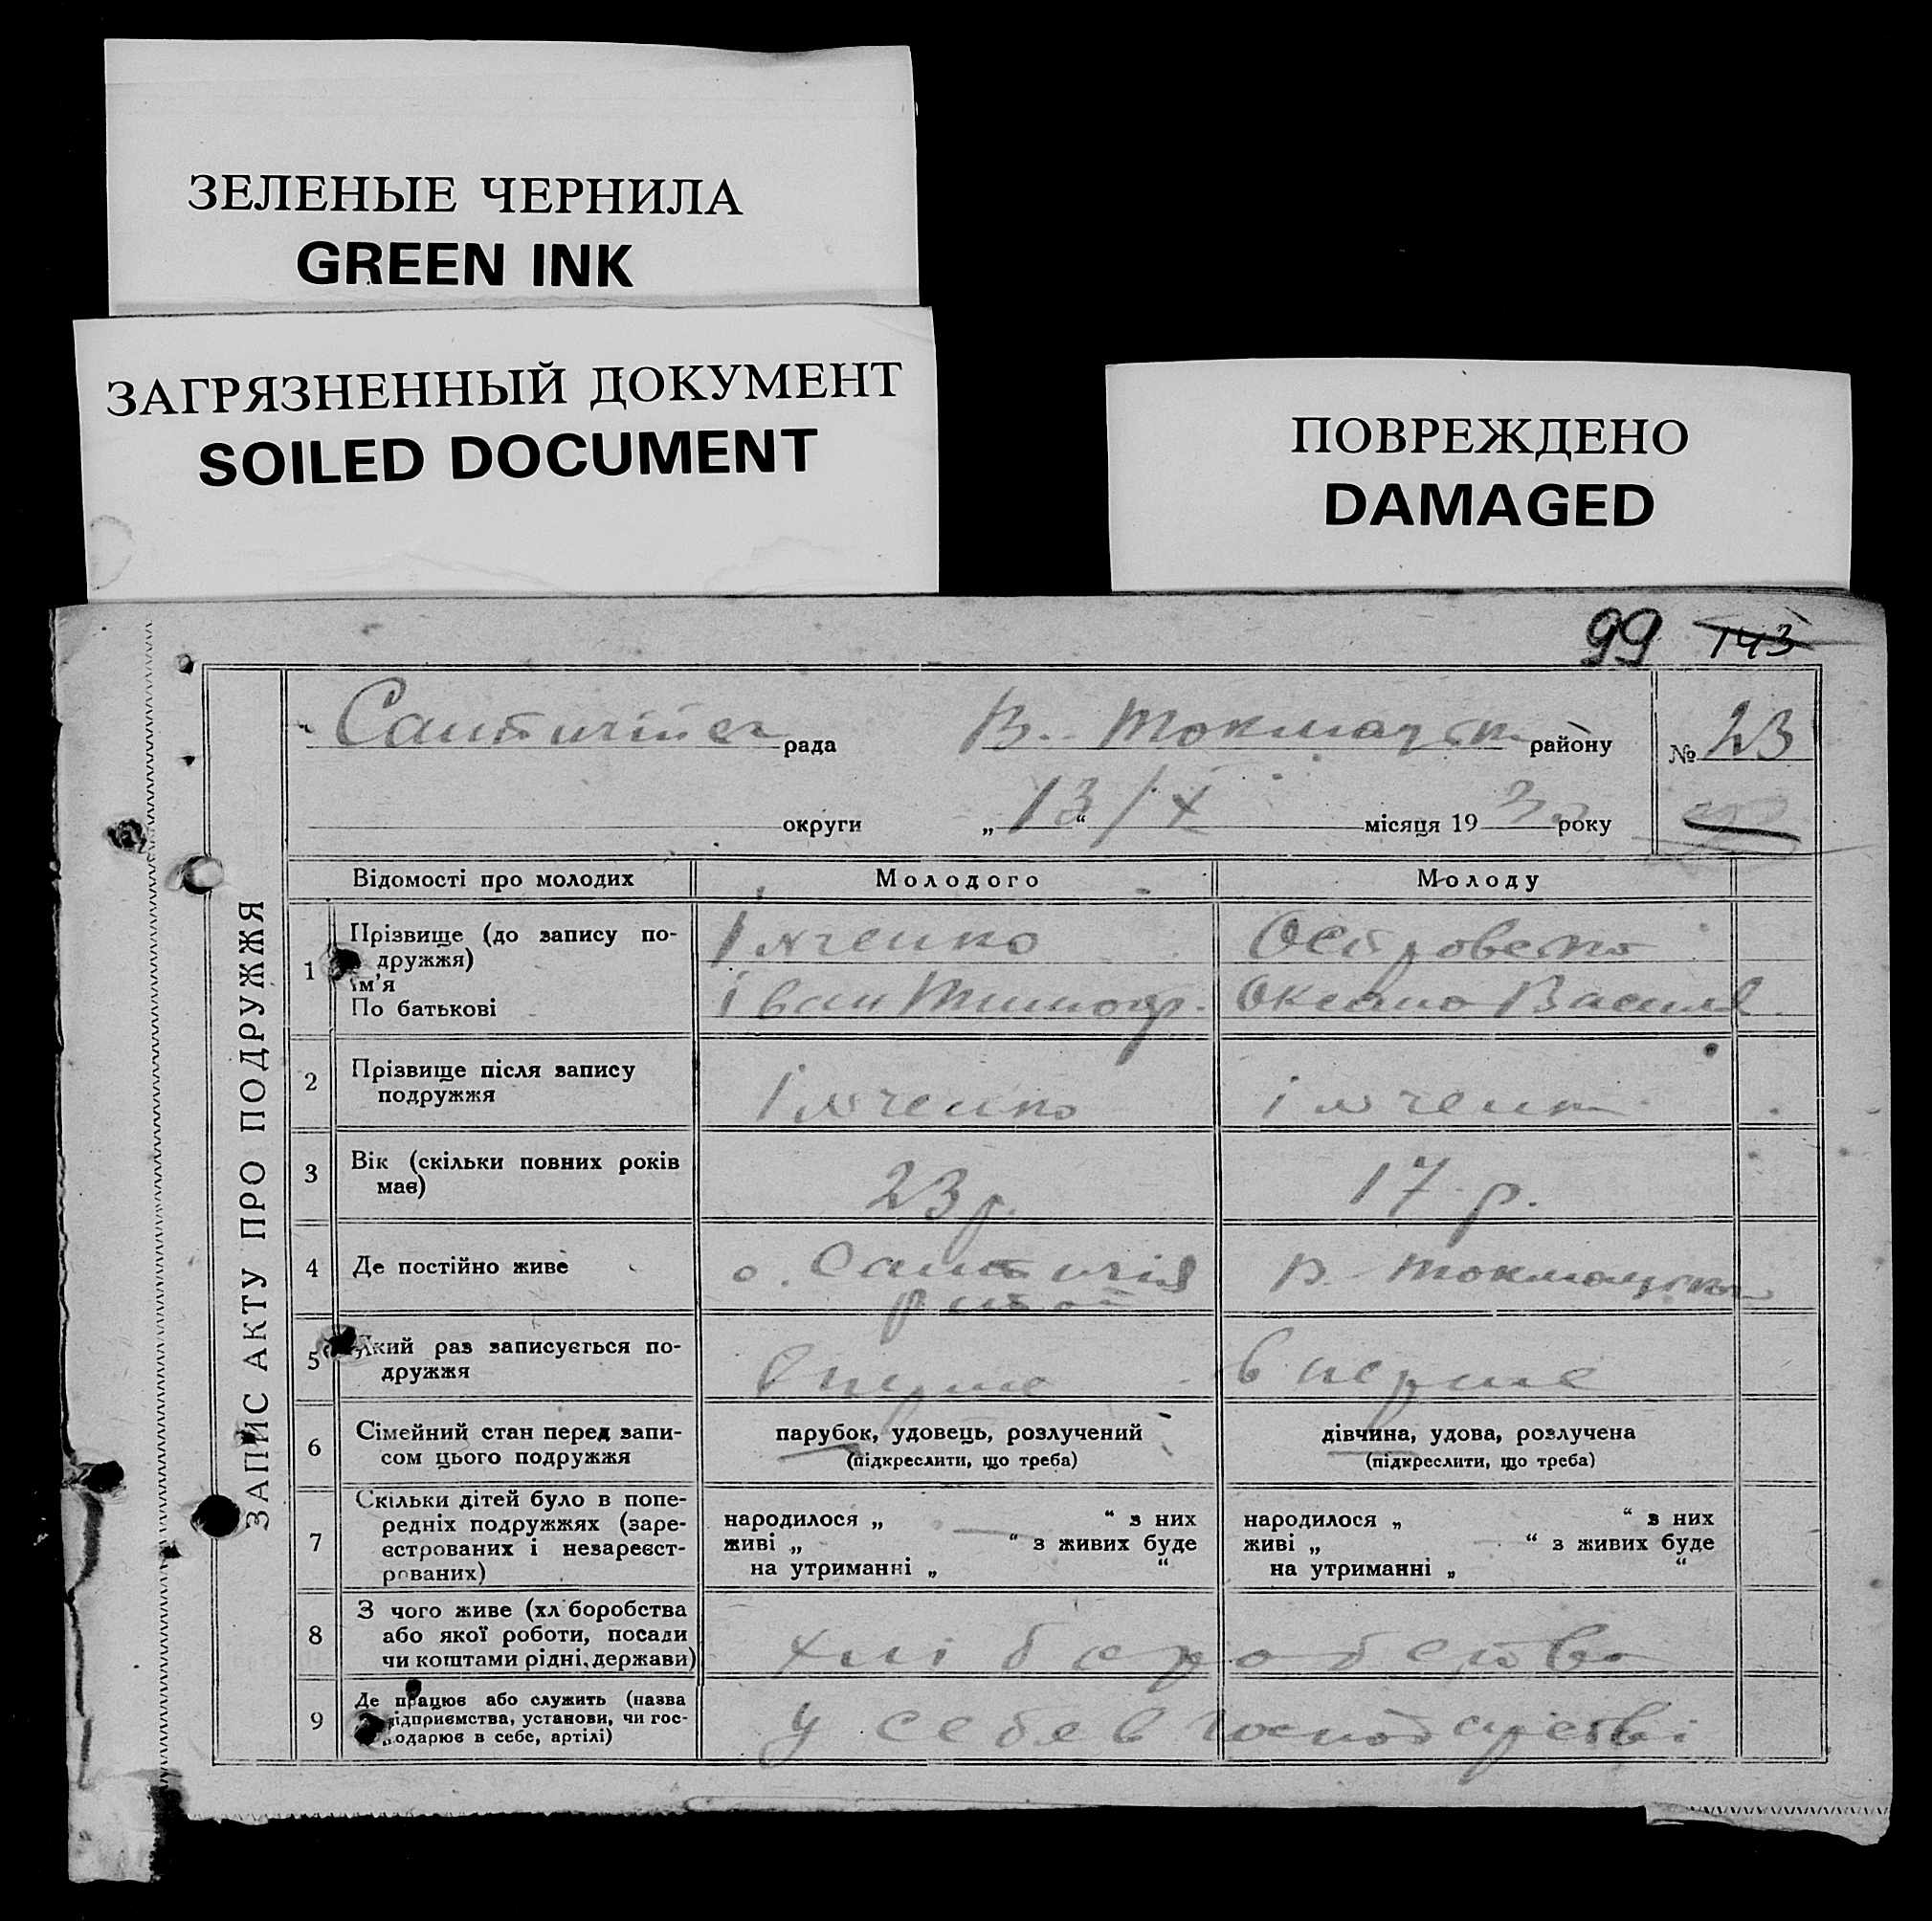 ЗЕЛЕНЫЕ ЧЕРНИЛА
GREEN INK
ЗАГРЯЗНЕННЫЙ ДОКУМЕНТ
SOILED DOCUMENT
ПОВРЕЖДЕНО
DAMAGED
99 143
рада В. Токмацьк району № 23
округи „13/X“ місяця 193 року
ЗАПИС АКТУ ПРО ПОДРУЖЖЯ
Відомості про молодих Молодого Молоду
1 Прізвище (до запису по-
дружжя)
Ім'я
По батькові
Островська
Іван Тимоф. Оксана Васил
2 Прізвище після запису
подружжя
3 Вік (скільки повних років
має)
23 р. 17 р.
4 Де постійно живе
В. Токмацьк
5 Який раз записується по-
дружжя
вперше вперше
6 Сімейний стан перед запи-
сом цього подружжя
парубок, удовець, розлучений
(підкреслити, що треба)
дівчина, удова, розлучена
(підкреслити, що треба)
7 Скільки дітей було в попе-
редніх подружжях (заре-
єстрованих і незареєст-
рованих)
народилося „ “ з них
живі „ “ з живих буде
на утриманні „ “
народилося „ “ з них
живі „ “ з живих буде
на утриманні „ “
8 З чого живе (хл боробства
або якої роботи, посади
чи коштами рідні, держави)
хліборобство
9 Де працює або служить (назва
підприємства, установи, чи гос-
подарює в себе, артілі)
у себе в господарстві